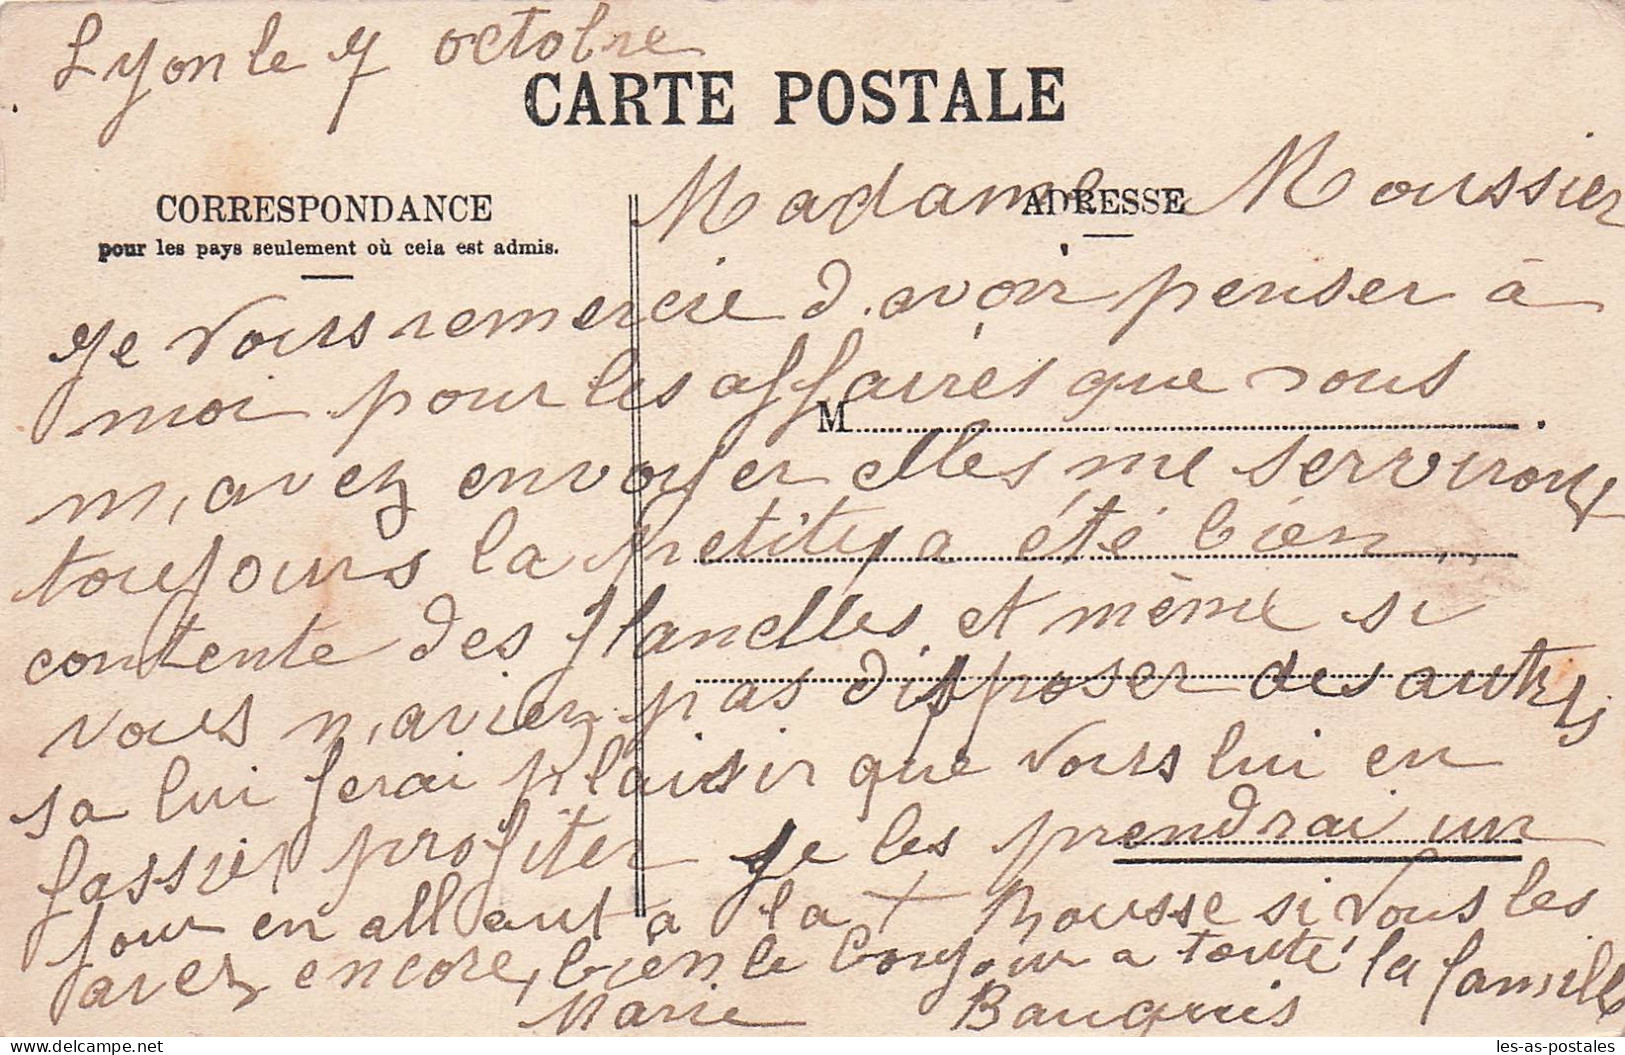 Lyon le 7 octobre
CARTE POSTALE
CORRESPONDANCE
pour les pays seulement où cela est admis.
ADRESSE
M
Madame Moussier
Je vous remercie d.avoir penser à
moi pour les affaires que vous
m,avez envoyer elles me serviront
toujours la petite a été bien
contente des flanelles et même si
vous n,aviez pas disposer des autres
sa lui ferai plaisir que vous lui en
fassiez profiter je les prendrai un
jour en allant a la + Rousse si vous les
avez encore, bien le bonjour a toute la famille
Marie Bauquis
les-as-postales.com